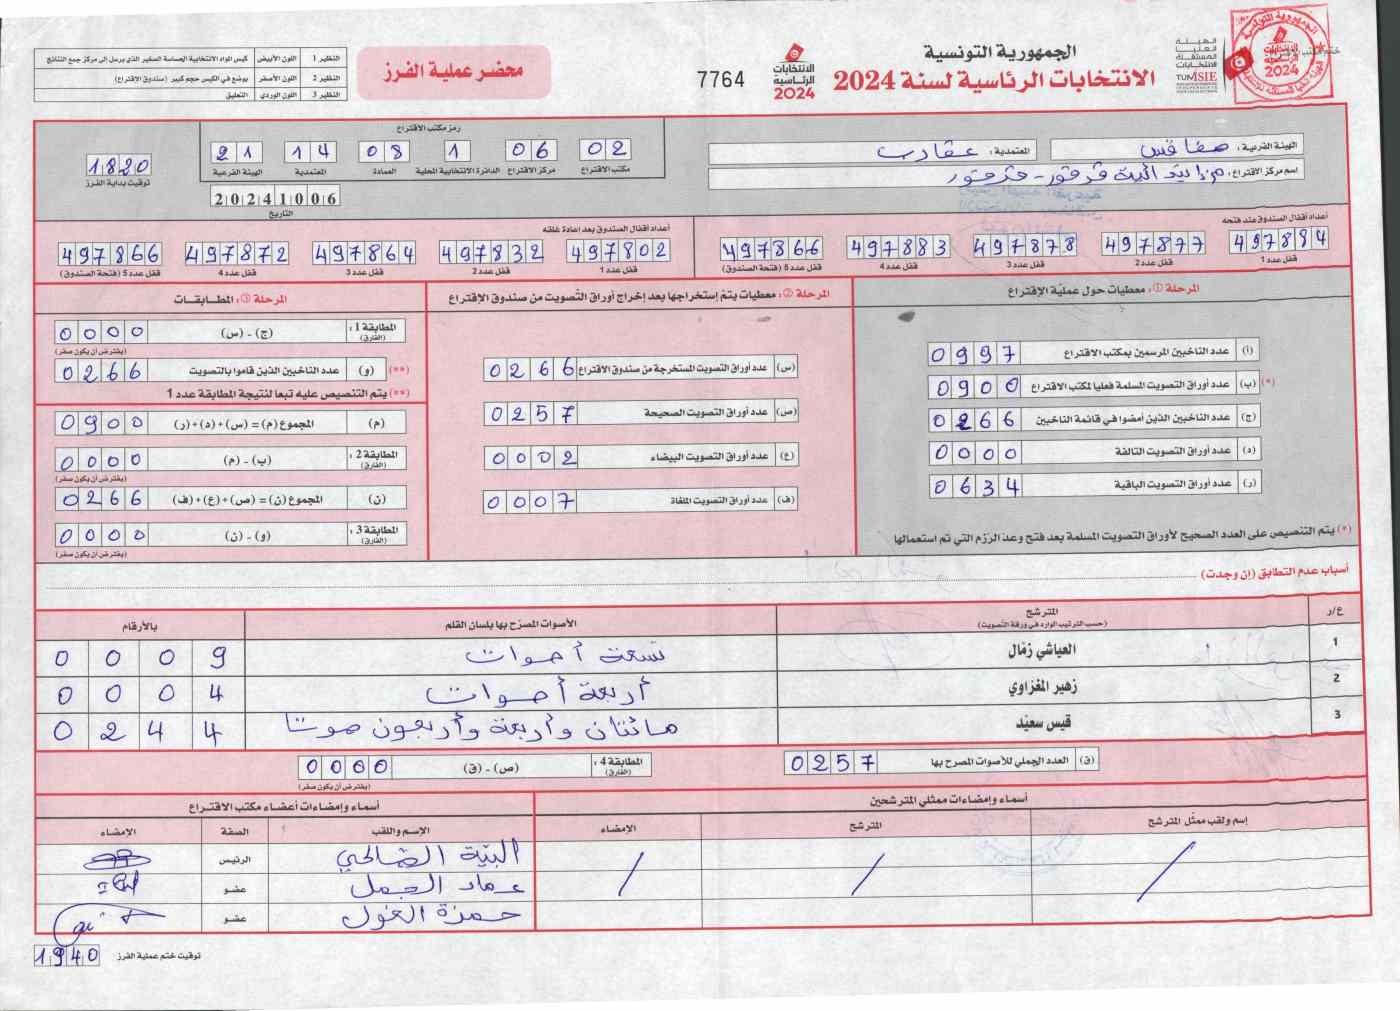 الجمهورية التونسية
الانتخابات الرئاسية لسنة 2024
الهيئة العليا المستقلة للانتخابات
TUNISIE
الانتخابات الرئاسية 2024
7764
محضر عملية الفرز
النظير 1 اللون الأبيض كيس المواد الانتخابية الحساسة الصغير الذي يرسل إلى مركز جمع النتائج
النظير 2 اللون الأصفر يوضع في الكيس حجم كبير (صندوق الاقتراع)
النظير 3 اللون الوردي التعليق
الهيئة الفرعية: صفاقس
المعتمدية: عقارب
اسم مركز الاقتراع:
رمز مكتب الاقتراع
02 06 1 08 14 21
مكتب الاقتراع مركز الاقتراع الدائرة الانتخابية المحلية العمادة المعتمدية الهيئة الفرعية
20241006
التاريخ
1820
توقيت بداية الفرز
أعداد أقفال الصندوق عند فتحه
497884 497877 497878 497883 497866
قفل عدد 1 قفل عدد 2 قفل عدد 3 قفل عدد 4 قفل عدد 5 (فتحة الصندوق)
أعداد أقفال الصندوق بعد إعادة غلقه
497802 497832 497864 497872 497866
قفل عدد 1 قفل عدد 2 قفل عدد 3 قفل عدد 4 قفل عدد 5 (فتحة الصندوق)
المرحلة ①: معطيات حول عملية الإقتراع
(أ) عدد الناخبين المرسمين بمكتب الاقتراع 0997
(*) (ب) عدد أوراق التصويت المسلمة فعليا لمكتب الاقتراع 0900
(ج) عدد الناخبين الذين أمضوا في قائمة الناخبين 0266
(د) عدد أوراق التصويت التالفة 0000
(ر) عدد أوراق التصويت الباقية 0634
(*) يتم التنصيص على العدد الصحيح لأوراق التصويت المسلمة بعد فتح وعد الرزم التي تم استعمالها
المرحلة ②: معطيات يتم إستخراجها بعد إخراج أوراق التصويت من صندوق الإقتراع
(س) عدد أوراق التصويت المستخرجة من صندوق الاقتراع 0266
(ص) عدد أوراق التصويت الصحيحة 0257
(ع) عدد أوراق التصويت البيضاء 0002
(ف) عدد أوراق التصويت الملغاة 0007
المرحلة ③: المطابقات
المطابقة 1: (الفارق) (ج) - (س) 0000
(يفترض أن يكون صفر)
(**) (و) عدد الناخبين الذين قاموا بالتصويت 0266
(**) يتم التنصيص عليه تبعا لنتيجة المطابقة عدد 1
(م) المجموع (م) = (س) + (د) + (ر) 0900
المطابقة 2: (الفارق) (ب) - (م) 0000
(يفترض أن يكون صفر)
(ن) المجموع (ن) = (ص) + (ع) + (ف) 0266
المطابقة 3: (الفارق) (و) - (ن) 0000
(يفترض أن يكون صفر)
أسباب عدم التطابق (إن وجدت)
ع/ر المترشح (حسب الترتيب الوارد في ورقة التصويت) الأصوات المصرح بها بلسان القلم بالأرقام
1 العياشي زمّال تسعة أصوات 0009
2 زهير المغزاوي أربعة أصوات 0004
3 قيس سعيّد مائتان وأربعة وأربعون صوتا 0244
(ق) العدد الجملي للأصوات المصرح بها 0257
المطابقة 4: (الفارق) (ص) - (ق) 0000
(يفترض أن يكون صفر)
أسماء وإمضاءات ممثلي المترشحين
إسم ولقب ممثّل المترشح المترشح الإمضاء
أسماء وإمضاءات أعضاء مكتب الاقتراع
الإسم واللقب الصفة الإمضاء
البية الصالحي الرئيس
عماد الجمل عضو
حمزة الغول عضو
توقيت ختم عملية الفرز 1940